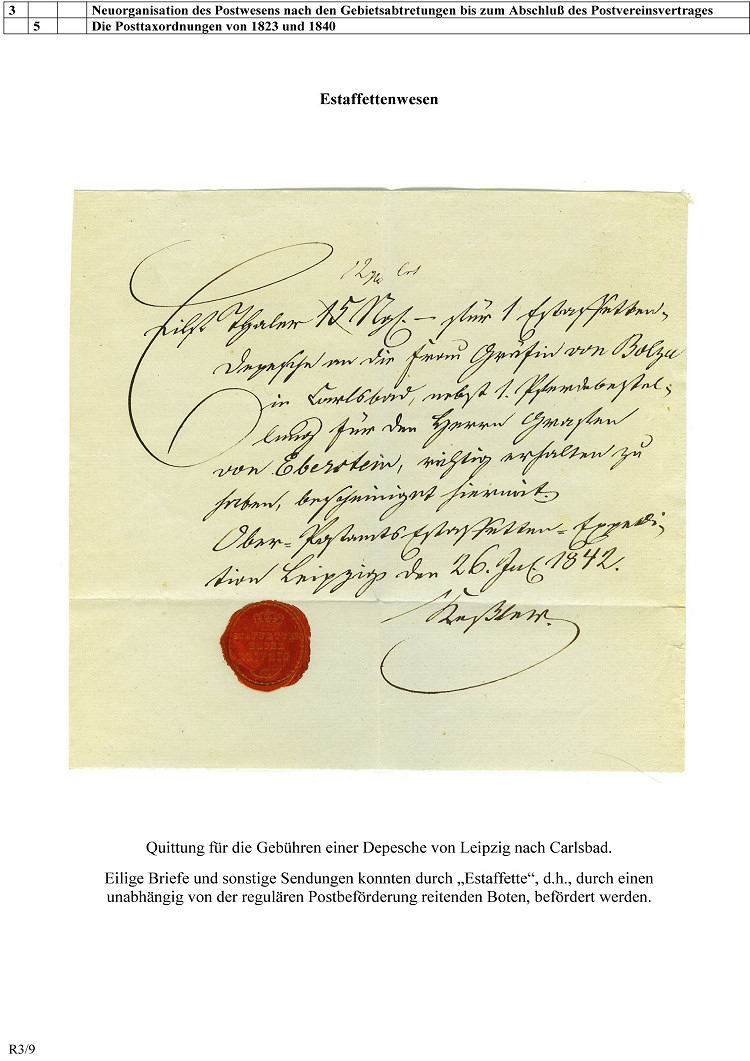 3 Neuorganisation des Postwesens nach den Gebietsabtretungen bis zum Abschluß des Postvereinsvertrages
5 Die Posttaxordnungen von 1823 und 1840
Estaffettenwesen
12
Eilf Thaler 15 Ngr. – für 1 Estaffetten-
Depesche an die Frau Gräfin von Bolza
in Carlsbad, nebst 1. Pferdebestel-
lung für den Herrn Grafen
von Eberstein, richtig erhalten zu
haben, bescheiniget hiermit.
Ober-Postamts Estaffetten-Expedi-
tion Leipzig den 26. Jul. 1842.
Keßler.
Quittung für die Gebühren einer Depesche von Leipzig nach Carlsbad.
Eilige Briefe und sonstige Sendungen konnten durch „Estaffette“, d.h., durch einen
unabhängig von der regulären Postbeförderung reitenden Boten, befördert werden.
R3/9